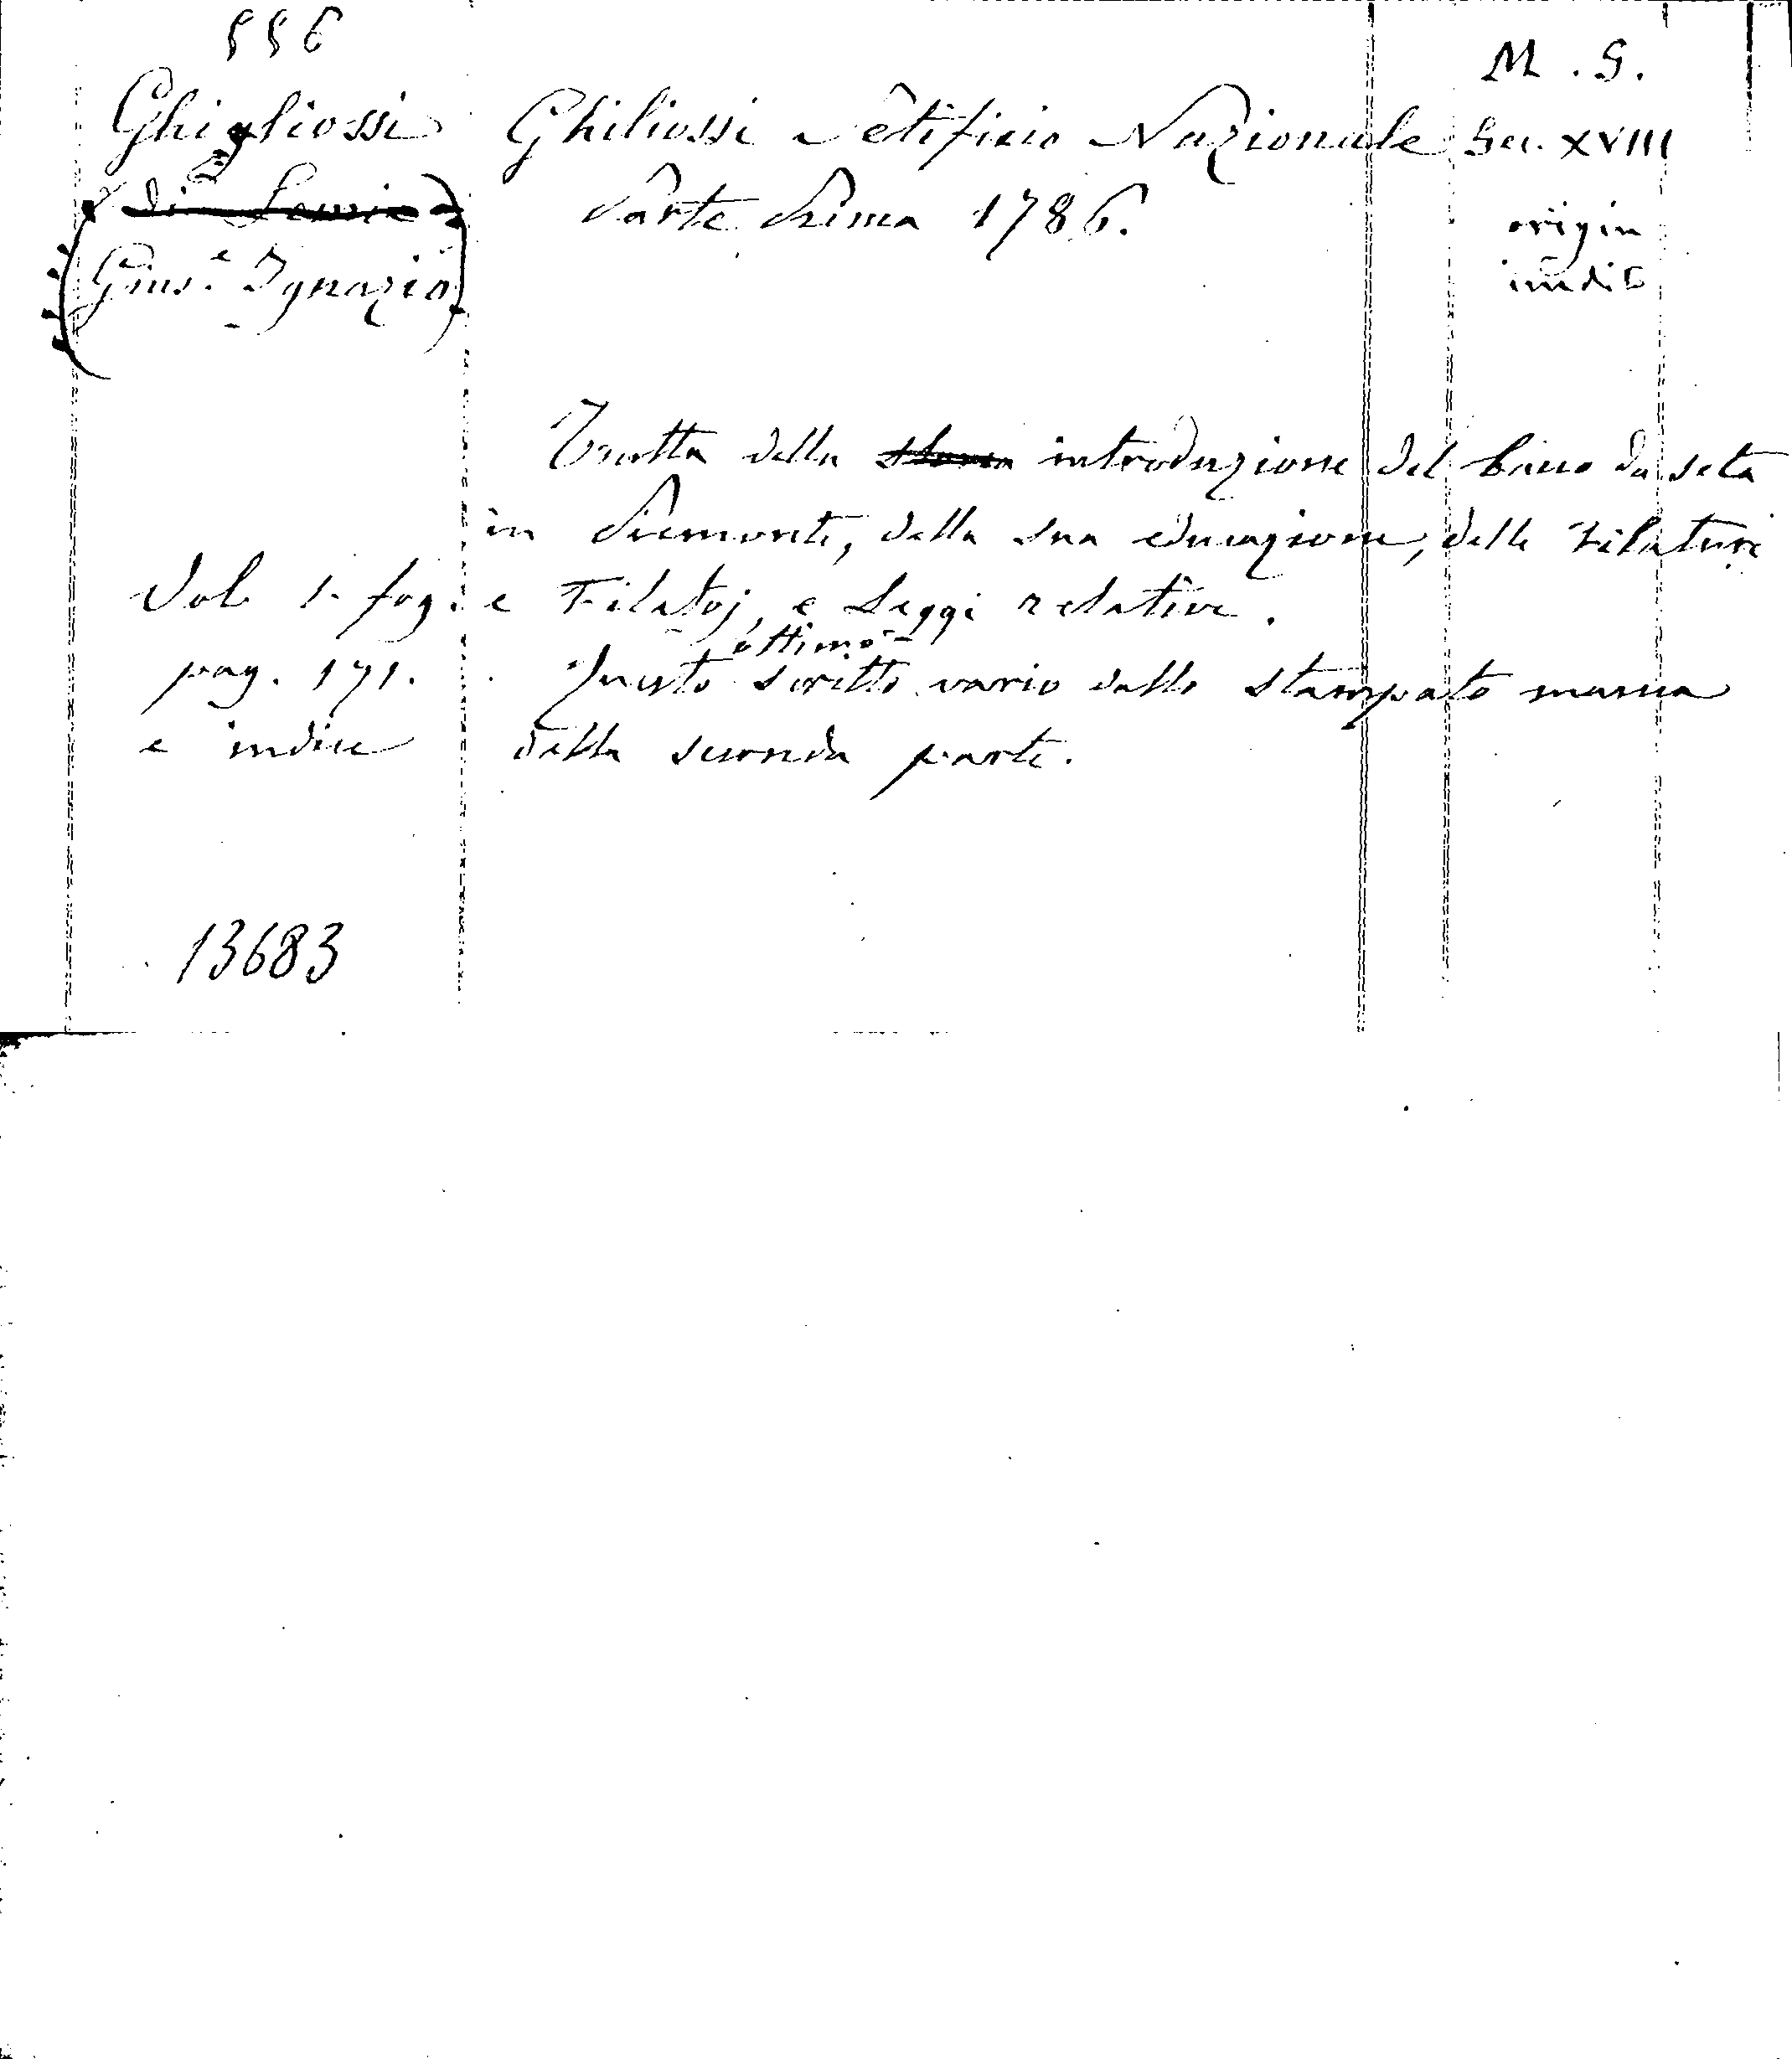 556
M. S.
Ghigliossi
Ghiliossi Setificio Nazionale
Sec. XVIII
di Lemie
Parte Prima 1786.
origin
inedit
Gius.e Ignazio
Tratta della storia introduzione del baco da seta
in Piemonte, della sua educazione, delle Filature
Vol. 1. fog.
e Filatoj, e Leggi relative.
ottimo
pag. 171.
Questo scritto vario dallo stampato manca
e indice
della seconda parte.
13683